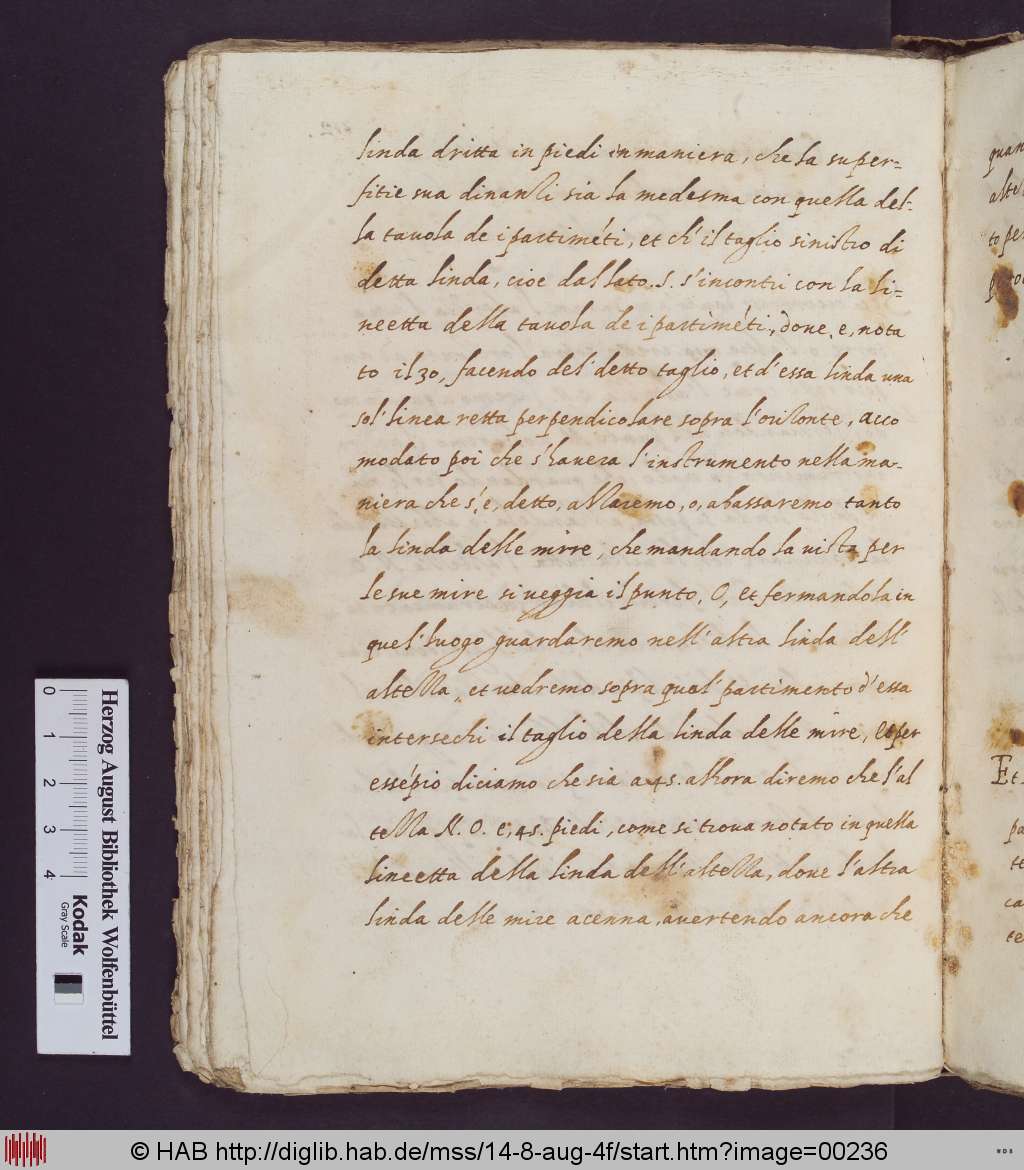 linda dritta in piedi in maniera, che la super-
fitie sua dinanzi sia la medesma con quella del-
la tavola de i partiméti, et ch' il taglio sinistro di
detta linda, cioe dal lato. S. s'incontri con la li-
neetta della tavola de i partiméti, dove, e, nota
to il 30, facendo del' detto taglio, et d'essa linda una
sol' linea retta perpendicolare sopra l'orizonte, acco
modato poi che s'havera l'instrumento nella ma-
niera che s'é, detto, alzaremo, o, abassaremo tanto
la linda delle mire, che mandando la vista per
le sue mire si veggia il punto, O, et fermandola in
quel' luogo guardaremo nell' altra linda dell'
altezza, et vedremo sopra qual' partimento d'essa
intersechi il taglio della linda delle mire, Et per
essépio diciamo che sia a 45. allhora diremo che l'al
tezza N. O. e, 45. piedi, come si trova notato in quella
lineetta della linda dell' altezza, dove l'altra
linda delle mire acenna, avertendo ancora che
quan
alte
to pe
Et
pa
te
ca
te
0 1 2 3 4
Herzog August Bibliothek Wolfenbüttel
Kodak
Gray Scale
© HAB http://diglib.hab.de/mss/14-8-aug-4f/start.htm?image=00236